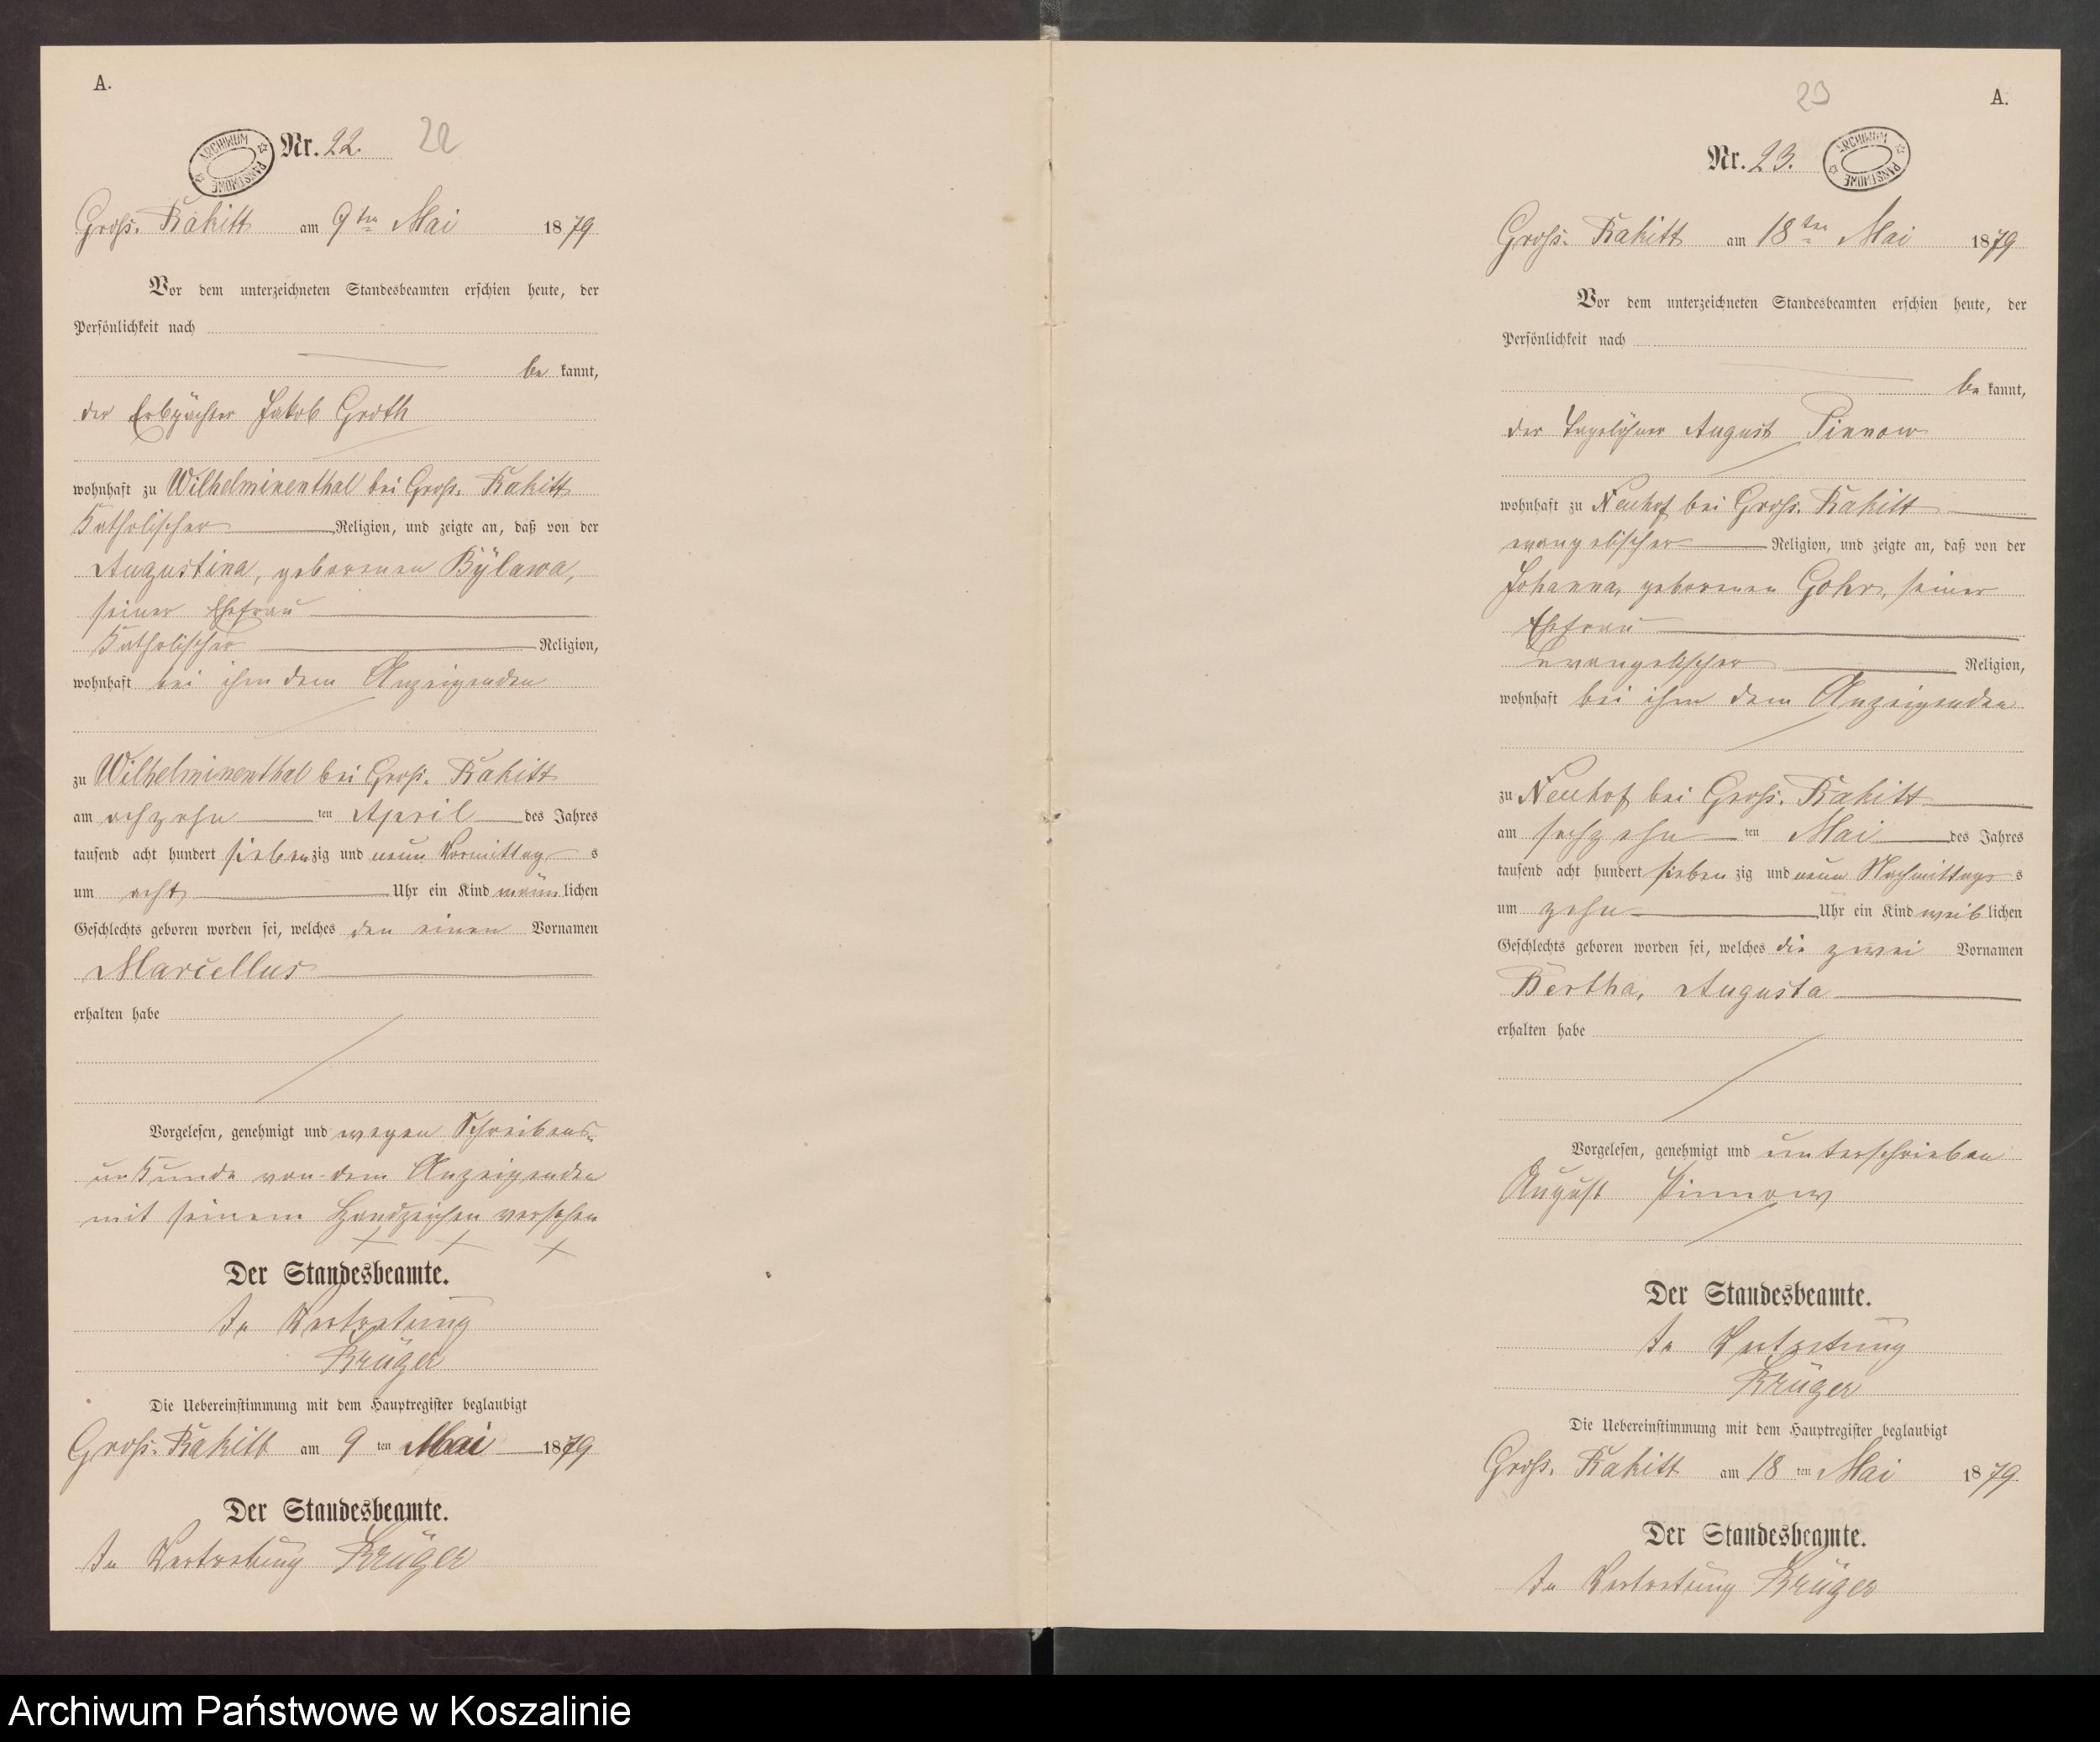 A.
Nr. 22. 22
ARCHIWUM PAŃSTWOWE
Groß. Rakitt am 9ten Mai 1879
Vor dem unterzeichneten Standesbeamten erschien heute, der
Persönlichkeit nach
be kannt,
der Erbpächter Jakob Groth
wohnhaft zu Wilhelminenthal bei Groß. Rakitt
Katholischer Religion, und zeigte an, daß von der
Augustina, geborenen Bÿlawa,
seiner Ehefrau
Katholischer Religion,
wohnhaft bei ihm dem Anzeigenden
zu Wilhelminenthal bei Groß. Rakitt
am achzehn ten April des Jahres
tausend acht hundert siebenzig und neun Vormittag s
um acht Uhr ein Kind männlichen
Geschlechts geboren worden sei, welches den einen Vornamen
Marcellus
erhalten habe
Vorgelesen, genehmigt und wegen Schreibens-
unkunde von dem Anzeigenden
mit seinem Handzeichen versehen
+ + +
Der Standesbeamte.
In Vertretung
Krüger
Die Uebereinstimmung mit dem Hauptregister beglaubigt
Groß. Rakitt am 9 ten Mai 1879
Der Standesbeamte.
In Vertretung Krüger
23 A.
Nr. 23.
ARCHIWUM PAŃSTWOWE
Groß. Rakitt am 18ten Mai 1879
Vor dem unterzeichneten Standesbeamten erschien heute, der
Persönlichkeit nach
be kannt,
der Tagelöhner August Pinnow
wohnhaft zu Neuhof bei Groß. Rakitt
evangelischer Religion, und zeigte an, daß von der
Johanna, geborenen Gohr, seiner
Ehefrau
Evangelischer Religion,
wohnhaft bei ihm dem Anzeigenden
zu Neuhof bei Groß. Rakitt
am sechzehn ten Mai des Jahres
tausend acht hundert siebenzig und neun Nachmittags s
um zehn Uhr ein Kind weiblichen
Geschlechts geboren worden sei, welches die zwei Vornamen
Bertha, Augusta
erhalten habe
Vorgelesen, genehmigt und unterschrieben
August Pinnow
Der Standesbeamte.
In Vertretung
Krüger
Die Uebereinstimmung mit dem Hauptregister beglaubigt
Groß. Rakitt am 18 ten Mai 1879.
Der Standesbeamte.
In Vertretung Krüger
Archiwum Państwowe w Koszalinie